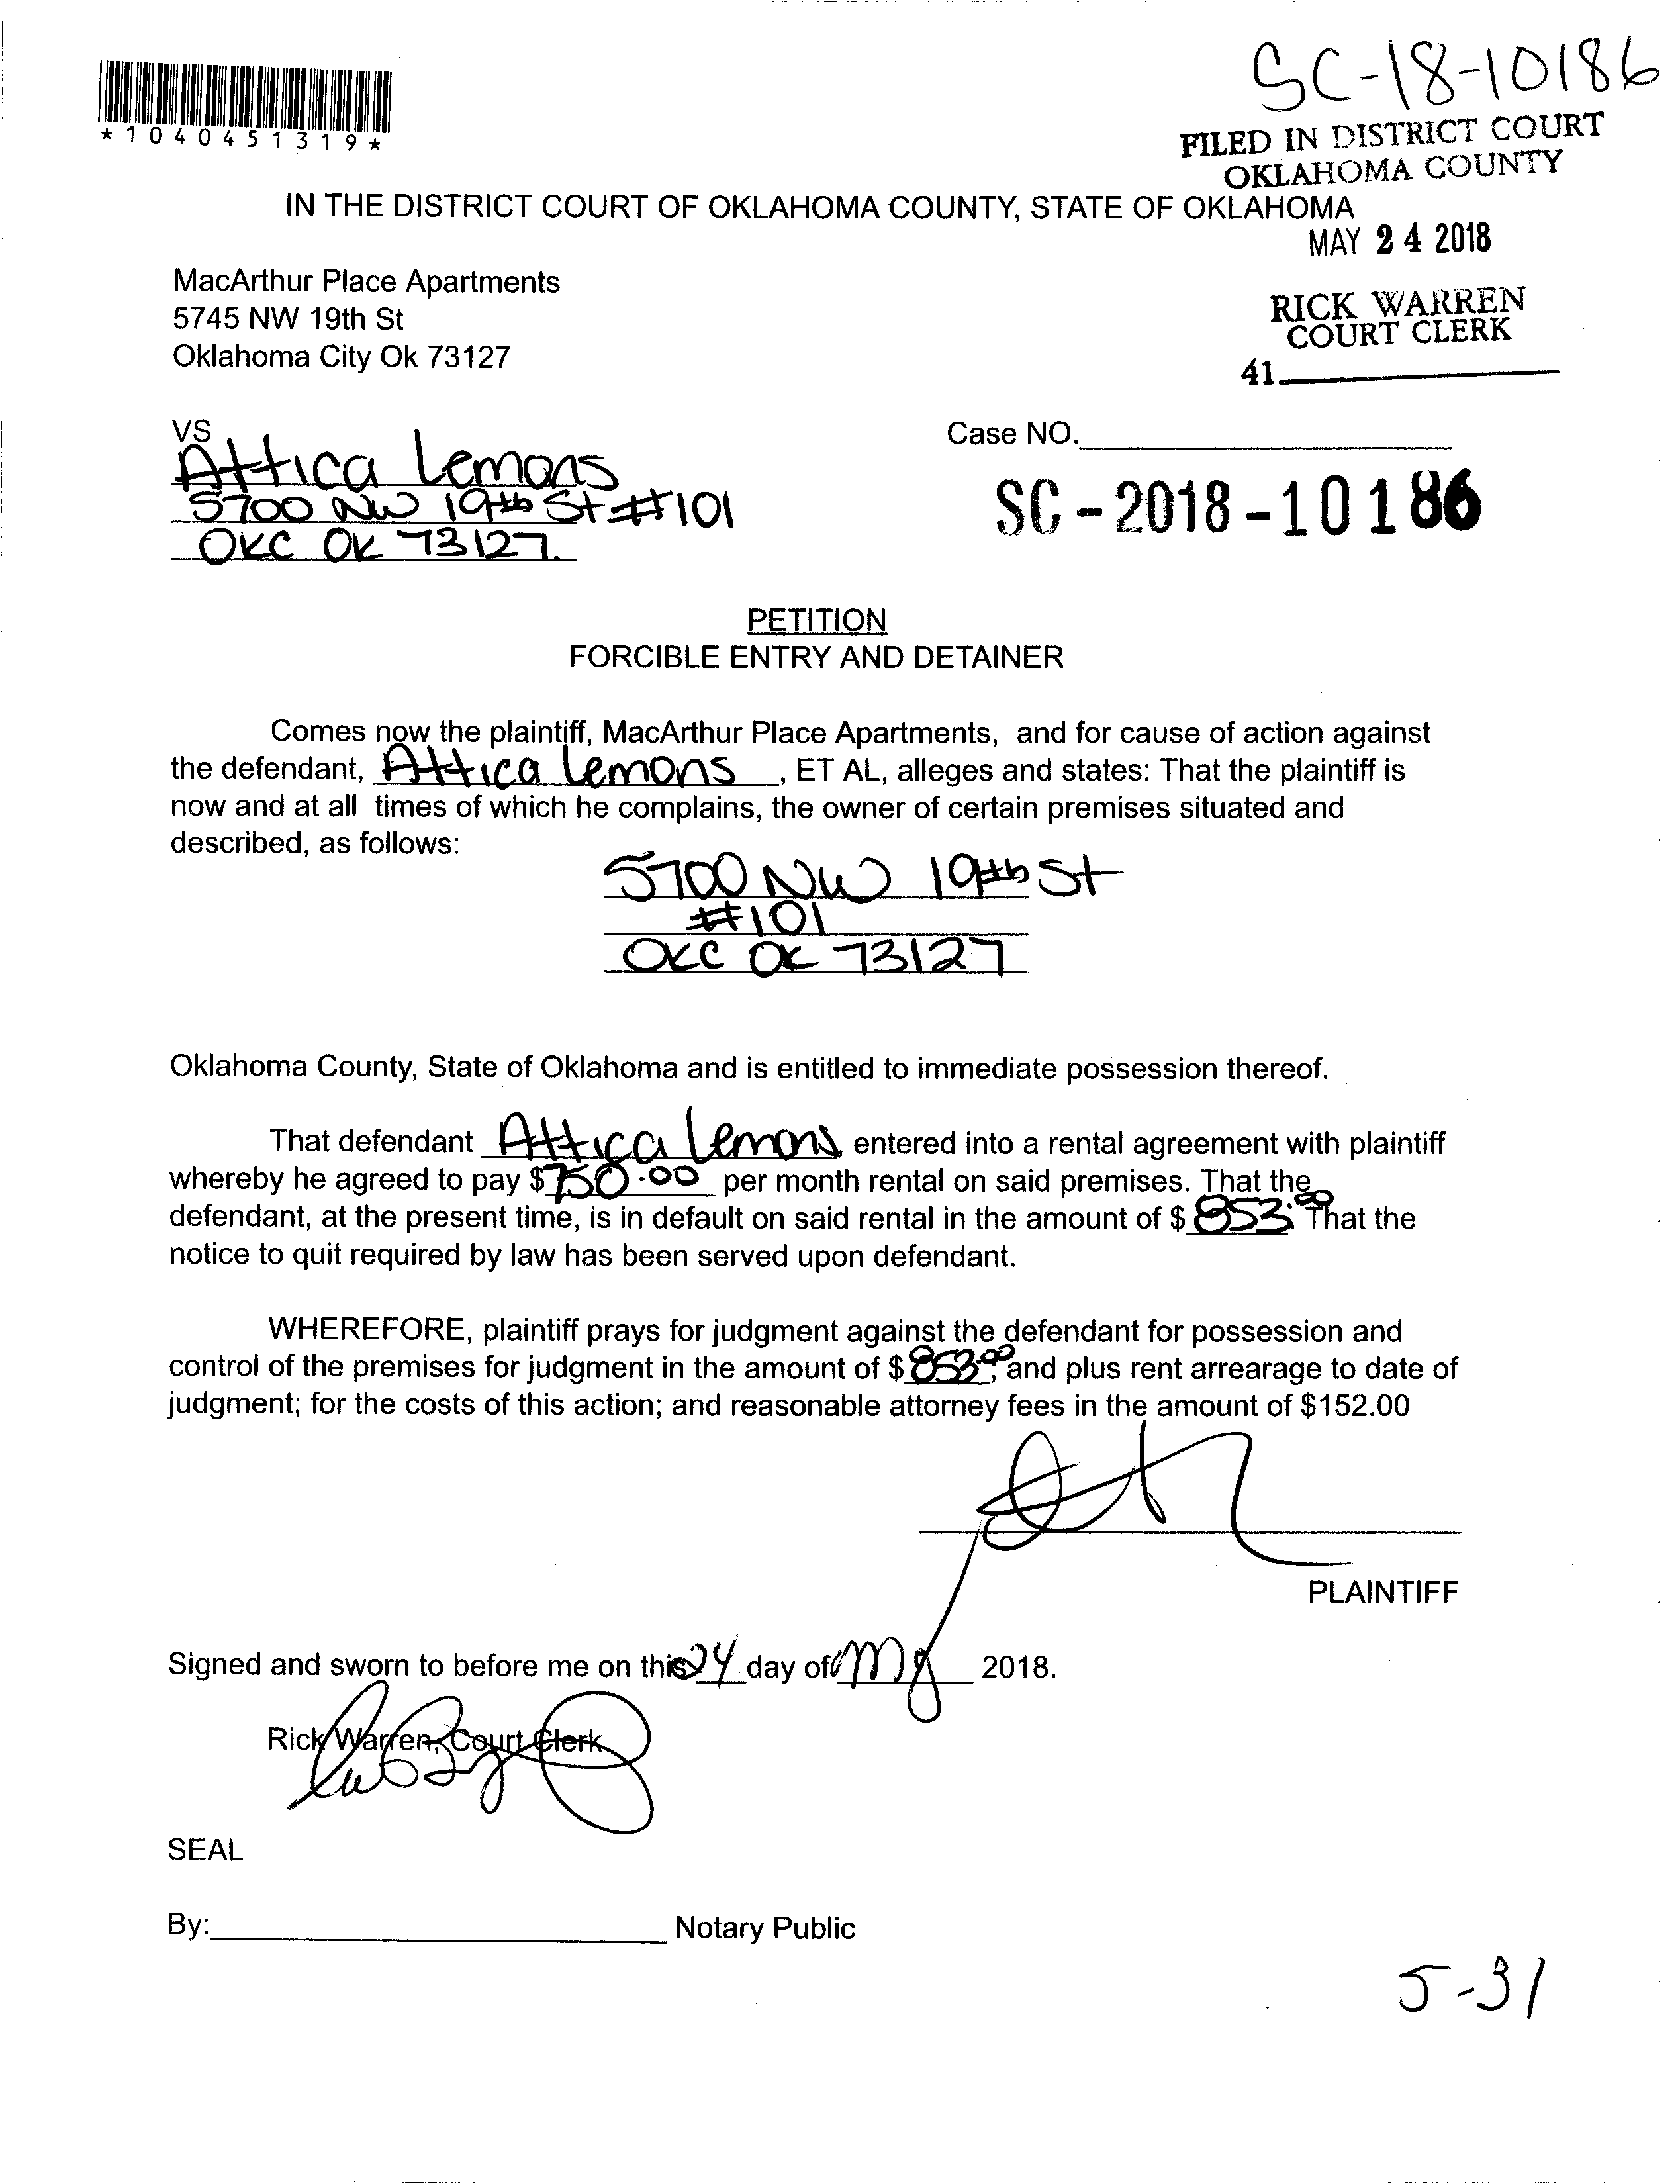 SC-18-10186
*1040451319*
FILED IN DISTRICT COURT
OKLAHOMA COUNTY
IN THE DISTRICT COURT OF OKLAHOMA COUNTY, STATE OF OKLAHOMA
MAY 24 2018
MacArthur Place Apartments
5745 NW 19th St
Oklahoma City Ok 73127
RICK WARREN
COURT CLERK
41
VS
Attica Lemons
5700 NW 19th St #101
OKC OK 73127.
Case NO.
SC-2018-10186
PETITION
FORCIBLE ENTRY AND DETAINER
Comes now the plaintiff, MacArthur Place Apartments, and for cause of action against
the defendant, Attica Lemons, ET AL, alleges and states: That the plaintiff is
now and at all times of which he complains, the owner of certain premises situated and
described, as follows:
5700 NW 19th St
#101
OKC OK 73127
Oklahoma County, State of Oklahoma and is entitled to immediate possession thereof.
That defendant Attica Lemons, entered into a rental agreement with plaintiff
whereby he agreed to pay $750.00 per month rental on said premises. That the
defendant, at the present time, is in default on said rental in the amount of $853.00 That the
notice to quit required by law has been served upon defendant.
WHEREFORE, plaintiff prays for judgment against the defendant for possession and
control of the premises for judgment in the amount of $853.00, and plus rent arrearage to date of
judgment; for the costs of this action; and reasonable attorney fees in the amount of $152.00
PLAINTIFF
Signed and sworn to before me on this 24 day of My 2018.
Rick Warren, Court Clerk
SEAL
By: Notary Public
5-31